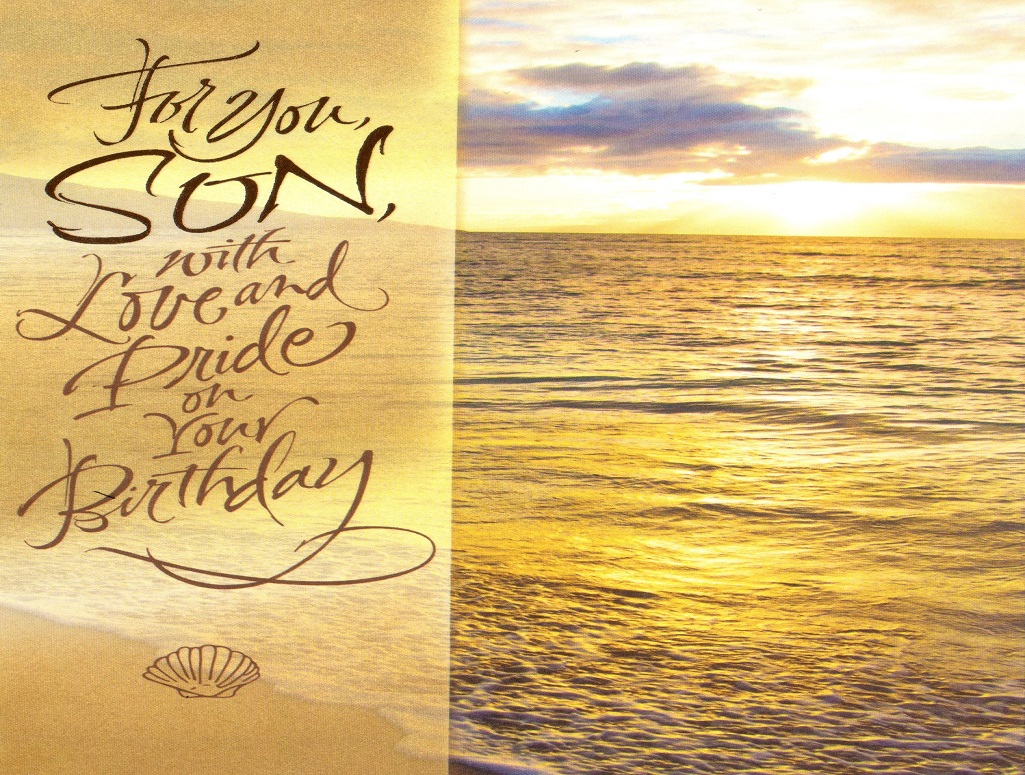 For you,
SON,
with
Love and
Pride
on
Your
Birthday